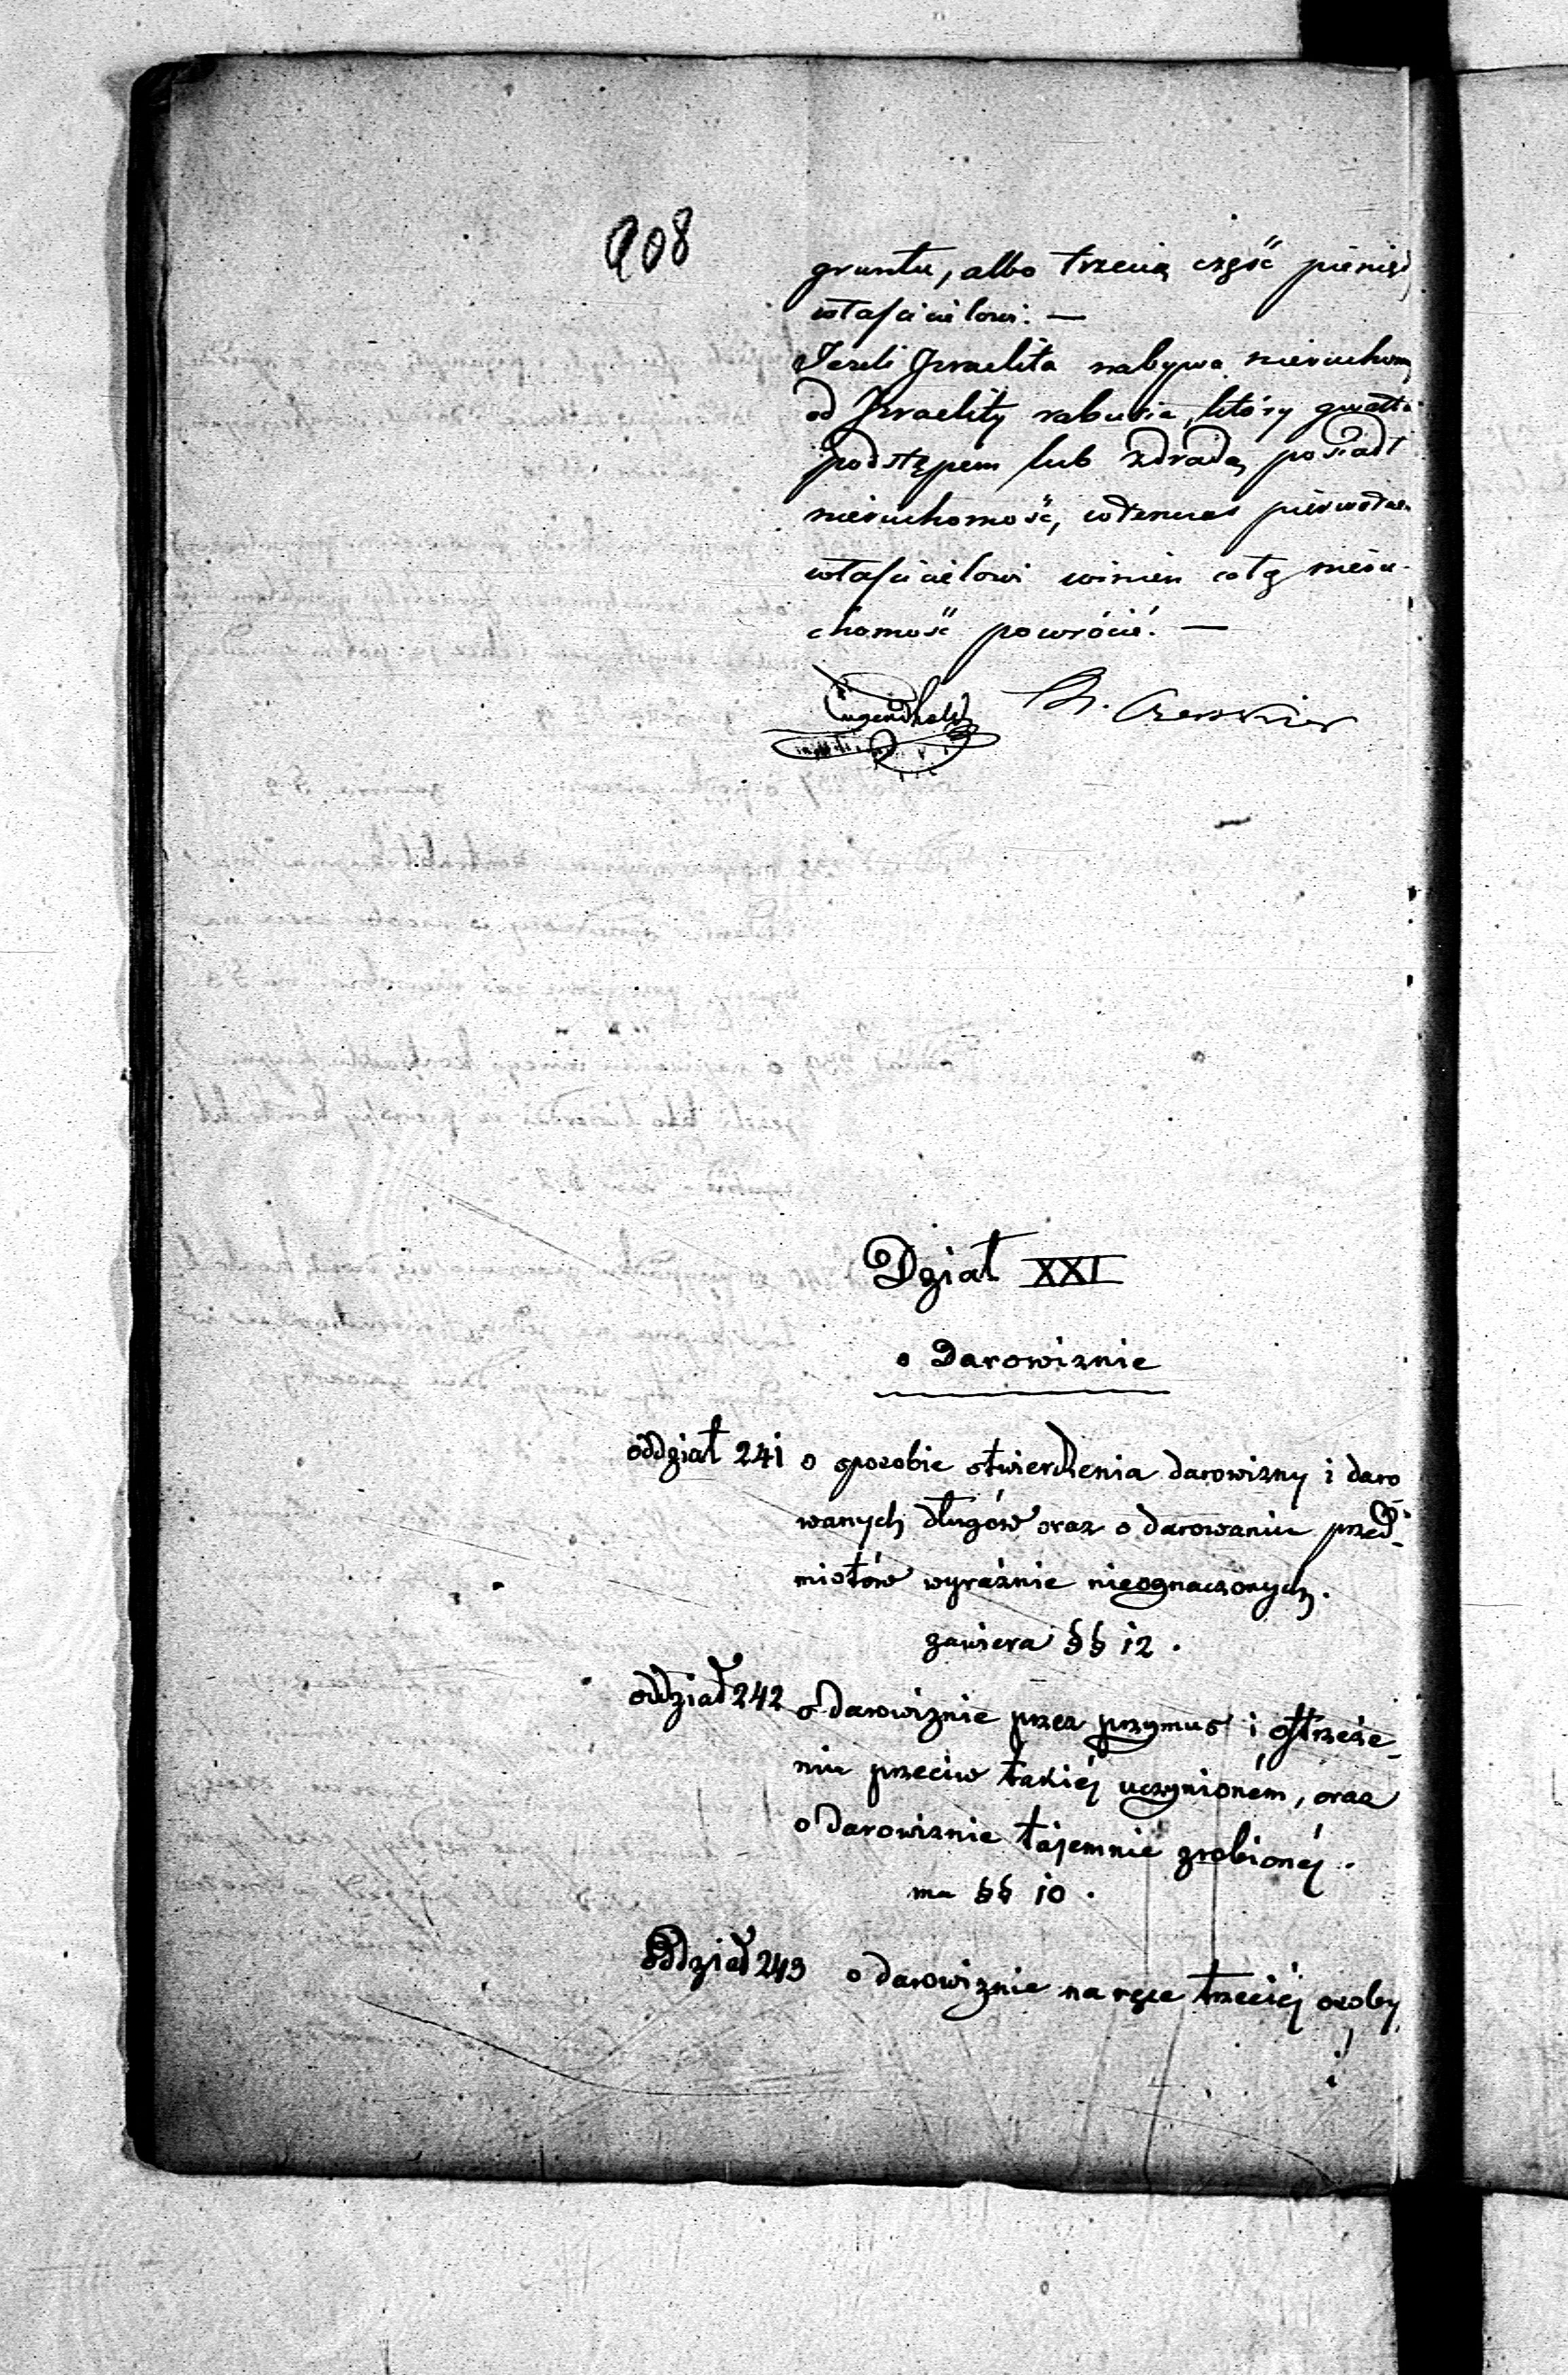 208
gruntu, albo trzecią część pienięd
właścicielowi. —
Jeżeli Izraelita nabywa nieruchom
od Izraelity rabusia, który gwałte
podstępem lub zdradą posiadł
nieruchomość, wtenczas pierwotne
właścicielowi winien całą nieru-
chomość powrócić. —
Tugendhold
Dział XXI
o Darowiznie
oddział 241 o sposobie stwierdzenia darowizny i daro
wanych długów oraz o darowaniu przed-
miotów wyraźnie nieoznaczonych.
zawiera §§ 12.
oddział 242 o darowiznie przez przymus i ostrzeże-
niu przeciw takiéj uczynioném, oraz
o darowiznie tajemnie zrobionéj.
ma §§ 10.
Oddział 243 o darowiznie na ręce trzeciéj osoby,